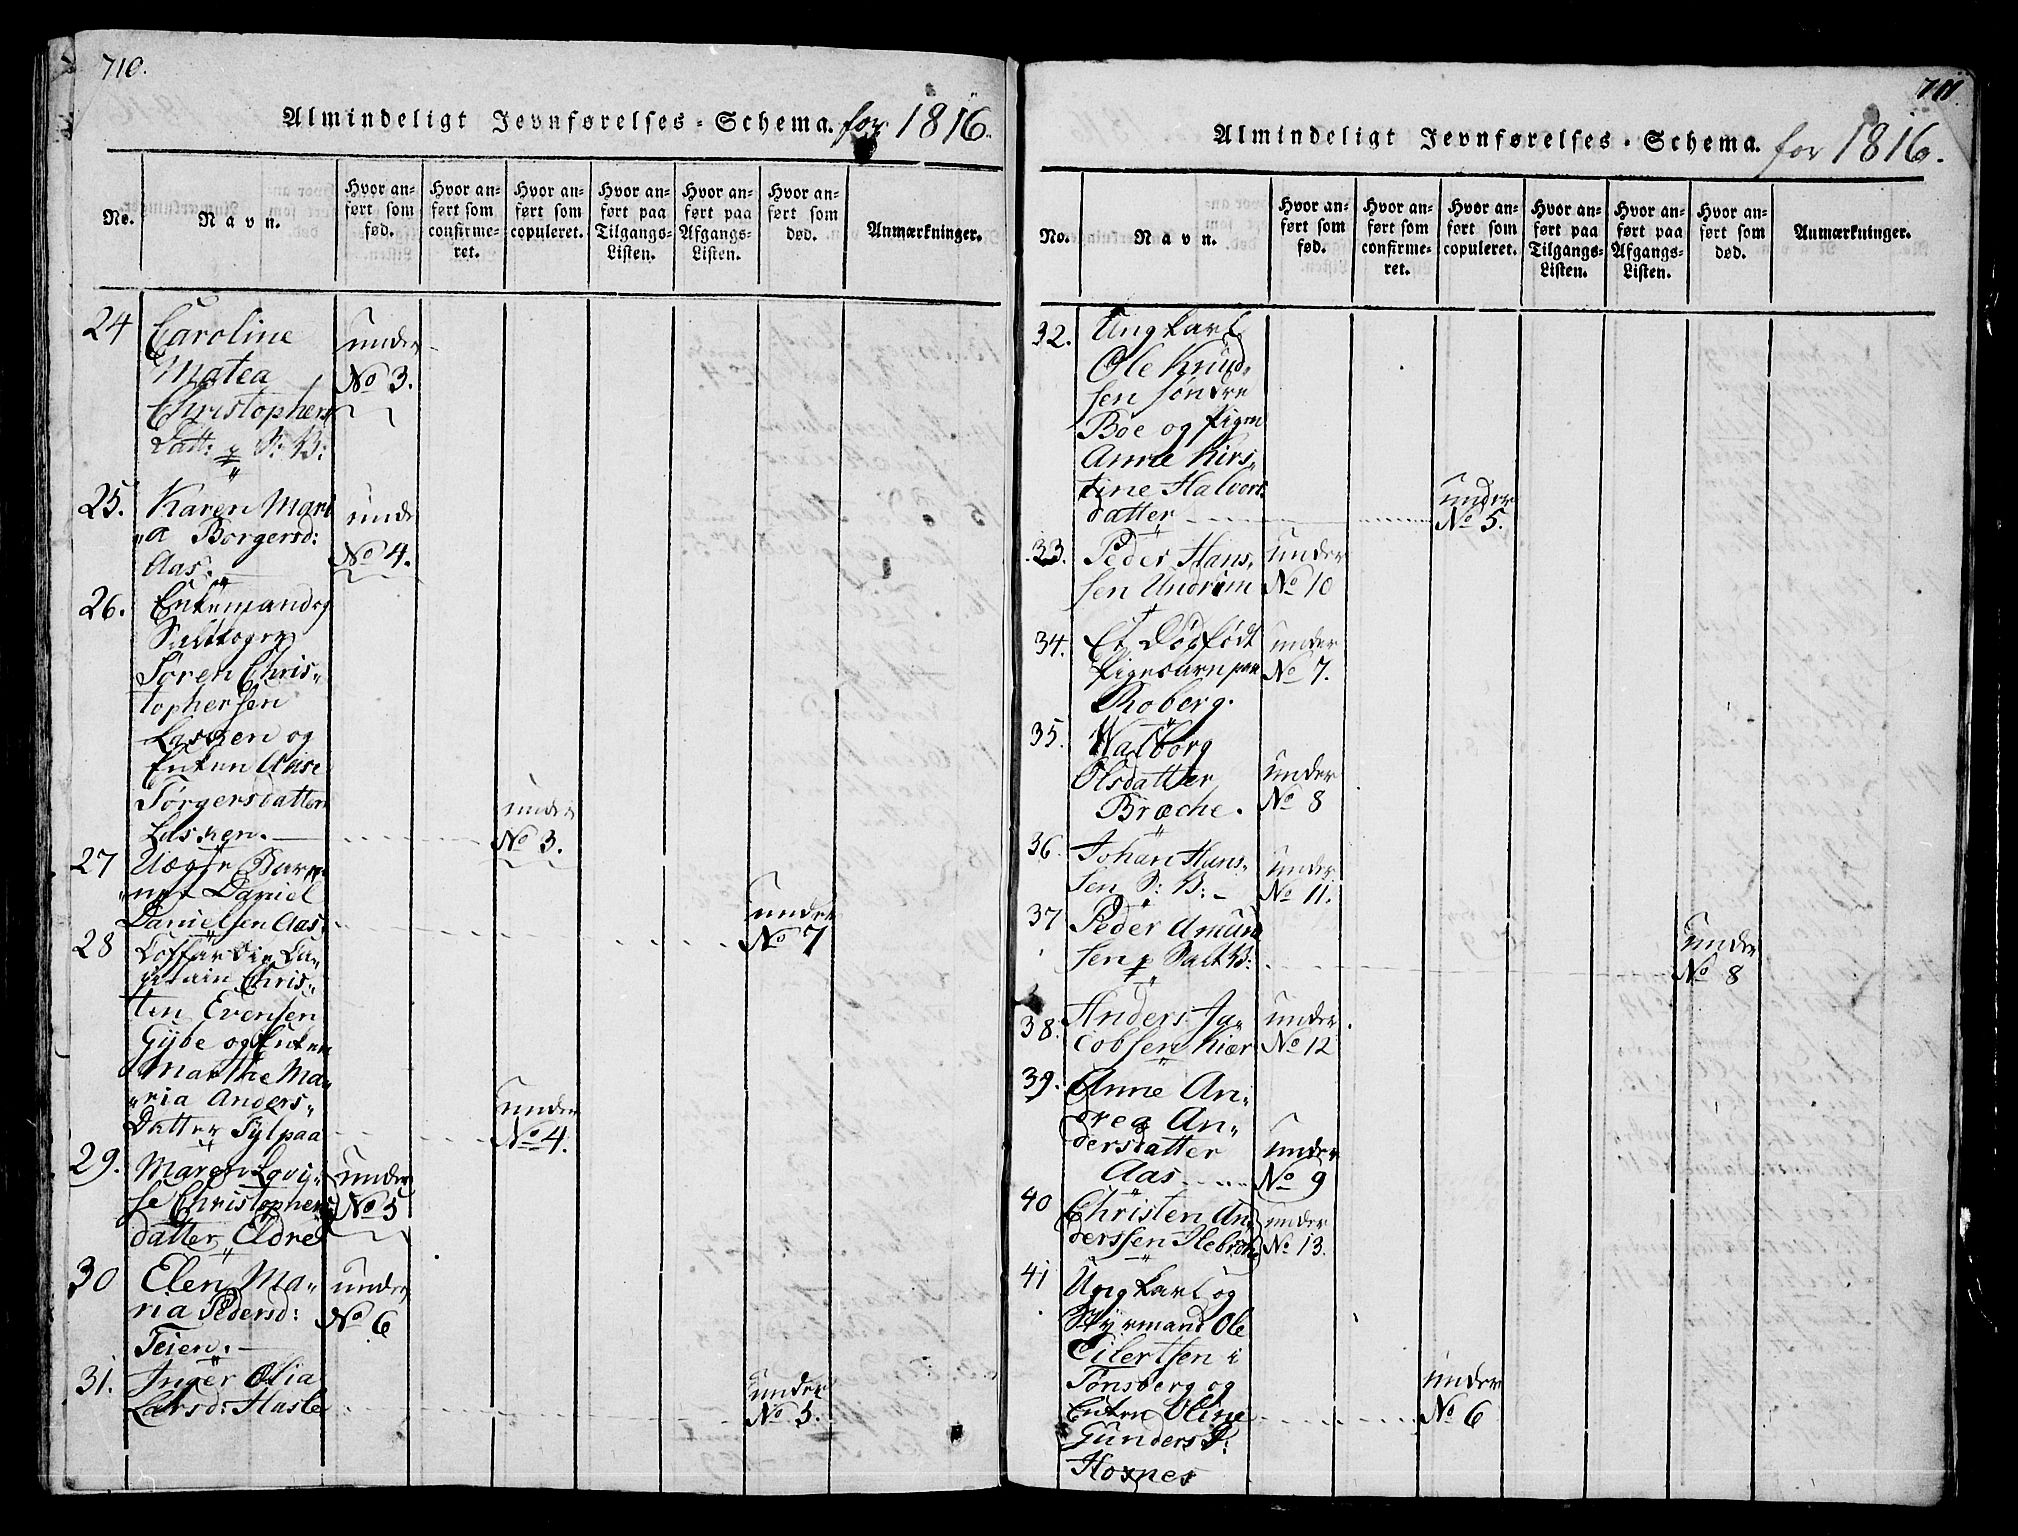 710.
Almindeligt Jevnførelses-Schema. for 1816.
No.
Navn.
Hvor an-
ført som
fød.
Hvor an-
ført som
confirme-
ret.
Hvor an-
ført som
copuleret.
Hvor an-
ført paa
Tilgangs-
Listen.
Hvor an-
ført paa
Afgangs-
Listen.
Hvor an-
ført som
død.
Anmærkninger.
24 Caroline
Matea under
Christophers No 3.
Datt: S: B:
25. Karen Mari
a Borgersd: unde
Aas. No 4.
26. Enkemand og
Sören Chris-
tophersen
Lasken og
Enken Anne
Törgersdatter
Lasken. under No 3.
27 Uægte Bar-
net Daniel
Danielsen Aas. under No 7
28 Coffardie Ca-
pitain Chris-
ten Evensen
Gybe og Enken
Marthe Ma-
ria Anders-
Datter Fÿlpaa under No 4.
29. Maren Lovi-
se Christophers under No 5
datter Eldre
30 Elen Ma- under
ria Pedersd: No 6
Teien.
31. Inger Olia
Larsd: Hasle under No 5.
711.
Almindeligt Jevnførelses-Schema. for 1816.
No.
Navn.
Hvor an-
ført som
fød.
Hvor an-
ført som
confirme-
ret.
Hvor an-
ført som
copuleret.
Hvor an-
ført paa
Tilgangs-
Listen.
Hvor an-
ført paa
Afgangs-
Listen.
Hvor an-
ført som
død.
Anmærkninger.
32. Ung Karl
Ole Knud-
sen söndre
Böe og Pigen
Anne Kirs-
tine Halvors
datter under No 5.
33. Peder Hans- under
sen Undrim No 10
34. Et Dödfödt under
Pigebarn paa No 7.
Roberg.
35. Walborg
Olsdatter under
Bræche. No 8
36. Johan Hans- under
sen S: B: No 11.
37 Peder Amund
sen p Salt B: under No 8
38. Anders Ja- under
cobsen Kiær No 12
39. Anne An-
drea An-
dersdatter under
Aas No 9
40 Christen An- under
derssen Ilebrek No 13.
41 Ung Karl og
Styrmand Ole
Eilertsen i
Tønsberg og
Enken Oline under No 6
Gunders D:
Hoxnes